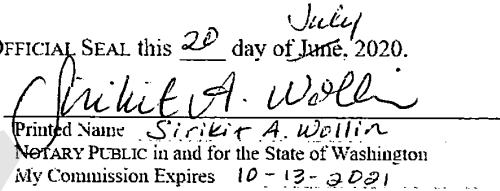 July
OFFICIAL SEAL this 20 day of June, 2020.
Sirikit A. Wollin
Printed Name Sirikit A. Wollin
NOTARY PUBLIC in and for the State of Washington
My Commission Expires 10-13-2021